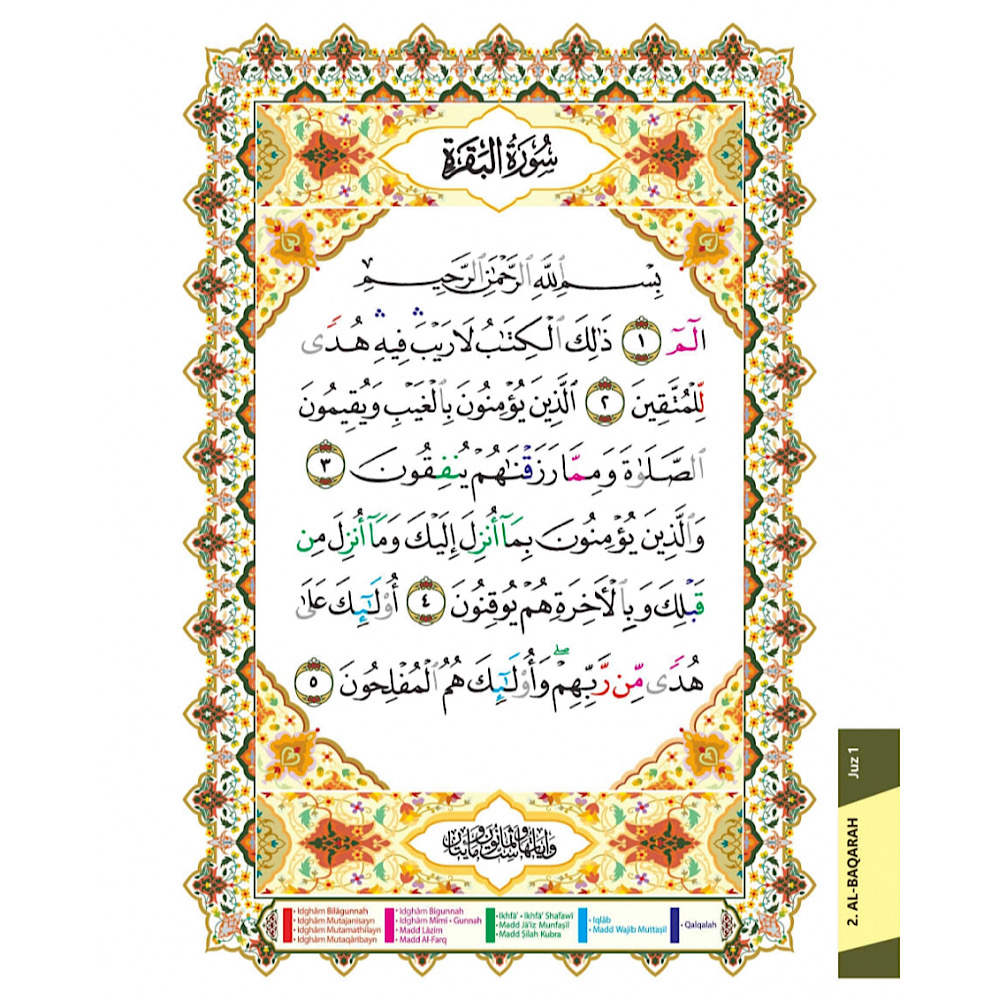 سُورَةُ الْبَقَرَةِ
بِسْمِ ٱللَّهِ ٱلرَّحْمَٰنِ ٱلرَّحِيمِ
الٓمٓ ١ ذَٰلِكَ ٱلْكِتَٰبُ لَا رَيْبَ ۛ فِيهِ ۛ هُدًى
لِّلْمُتَّقِينَ ٢ ٱلَّذِينَ يُؤْمِنُونَ بِٱلْغَيْبِ وَيُقِيمُونَ
ٱلصَّلَوٰةَ وَمِمَّا رَزَقْنَٰهُمْ يُنفِقُونَ ٣
وَٱلَّذِينَ يُؤْمِنُونَ بِمَآ أُنزِلَ إِلَيْكَ وَمَآ أُنزِلَ مِن
قَبْلِكَ وَبِٱلْأَخِرَةِ هُمْ يُوقِنُونَ ٤ أُو۟لَٰٓئِكَ عَلَىٰ
هُدًى مِّن رَّبِّهِمْ ۖ وَأُو۟لَٰٓئِكَ هُمُ ٱلْمُفْلِحُونَ ٥
وآياتها ست وثمانون ومايتان
• Idghām Bilāgunnah
• Idghām Mutajanisayn
• Idghām Mutamathilayn
• Idghām Mutaqāribayn
• Idghām Bigunnah
• Idghām Mimi • Gunnah
• Madd Lāzim
• Madd Al-Farq
• Ikhfā' • Ikhfā' Shafawī
• Madd Jā'iz Munfaṣil
• Madd Ṣilah Kubra
• Iqlāb
• Madd Wajib Muttaṣil
• Qalqalah
Juz 1
2. AL-BAQARAH